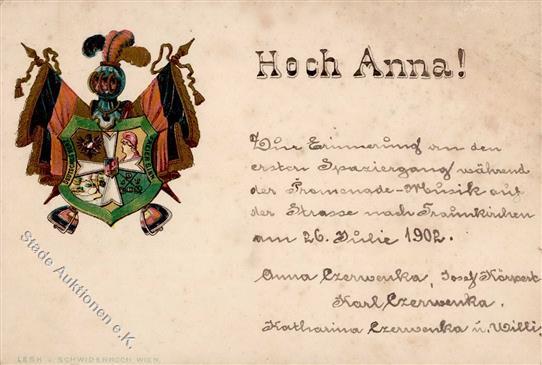 Hoch Anna!
Zur Erinnerung an den
ersten Spaziergang während
der Promenade-Musik auf
der Strasse nach Traunkirchen
am 26. Julie 1902.
Anna Czerwenka, Josef
Karl Czerwenka.
Katharina Czerwenka u. Willi.
Stade Auktionen e.K.
LESK & SCHWIDERNOCH WIEN.